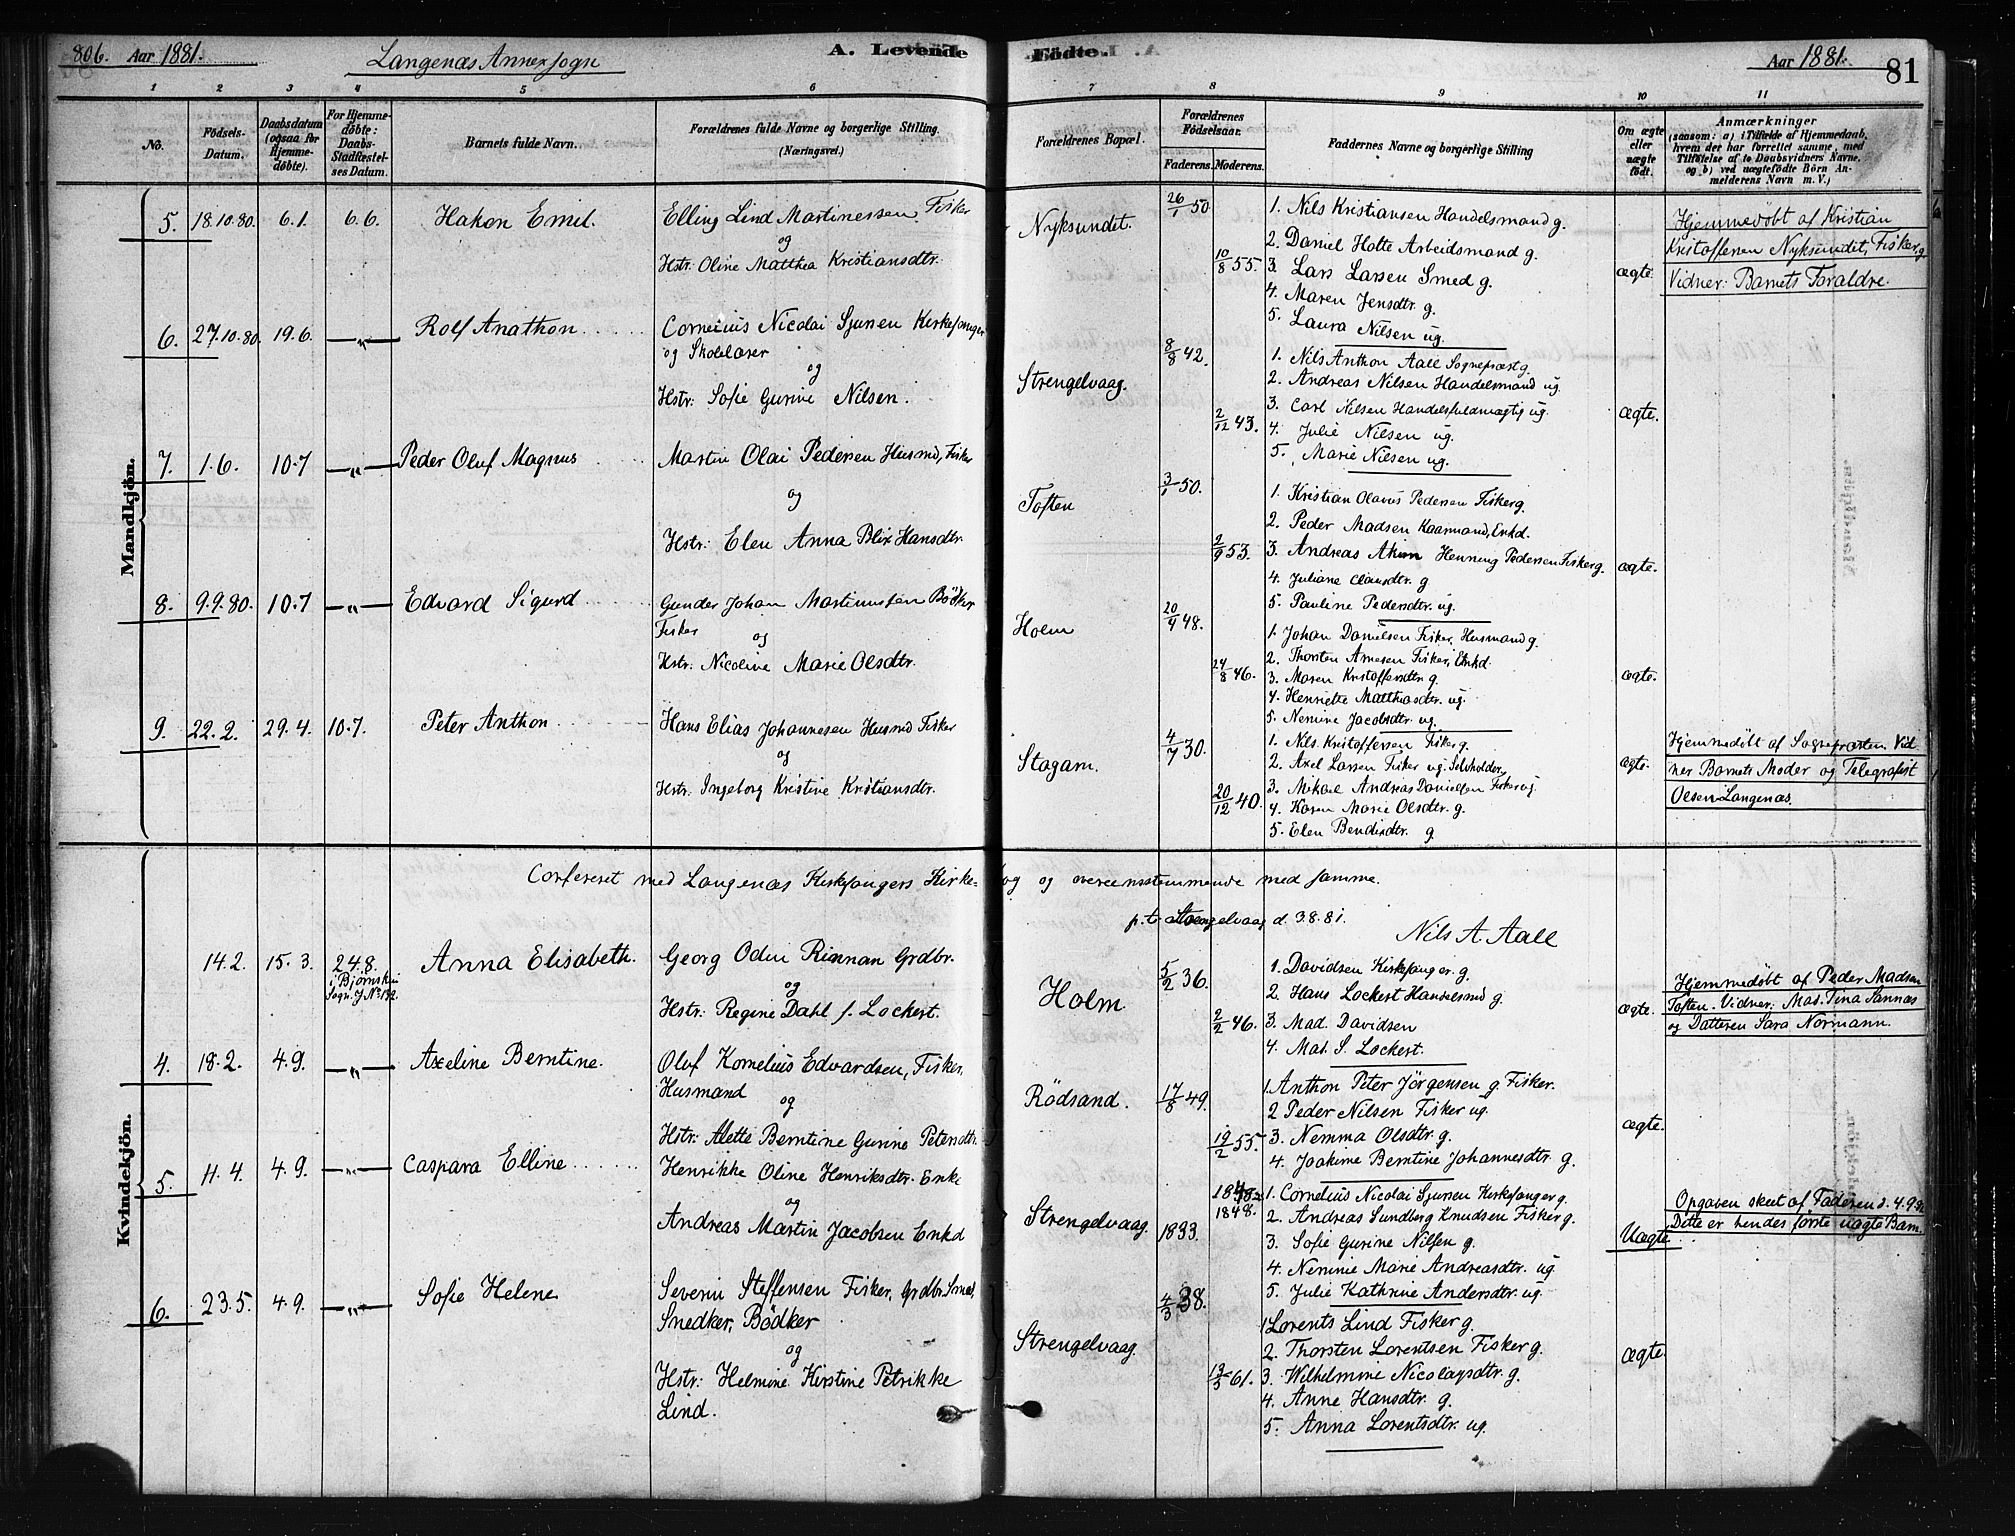 806. Aar 1881. Langenæs Annexsogn A. Levende Födte. Aar 1881. 81
1 2 3 4 5 6 7 8 9 10 11
No.
Födsels-Datum.
Daabsdatum (ogsaa for Hjemmedöbte).
For Hjemmedöbte: Daabs-Stadfæstelses Datum.
Barnets fulde Navn.
Forældrenes fulde Navne og borgerlige Stilling.
(Næringsvei.)
Forældrenes Bopæl.
Forældrenes Födselsaar.
Faderens. Moderens.
Faddernes Navne og borgerlige Stilling
Om ægte eller uægte födt.
Anmærkninger
(saasom: a) i Tilfælde af Hjemmedaab,
hvem der har forrettet samme, med
Tilföielse af to Daabsvidners Navne.
og b) ved uægtefödte Börn Anmelderens Navn m. V.)
Mandkjön.
5. 18.10.80. 6.1. 6.6. Hakon Emil. Elling Lind Martinessen Fisker
og
Hstr: Oline Matthea Kristiansdtr.
Nyksundet. 26/1 50 10/8 55.
1. Nils Kristiansen Handelsmand g.
2. Daniel Holte Arbeidsmand g.
3. Lars Larsen Smed g.
4. Maren Jensdtr. g.
5. Laura Nilsen ug.
ægte
Hjemmedöbt af Kristian
Kristoffersen Nyksundet, Fisker g.
Vidner: Barnets Foraldre.
6. 27.10.80. 19.6. —„— Rolf Anathon Cornelius Nicolai Sjursen Kirkesanger
og Skolelærer
og
Hstr: Sofie Gurine Nilsen.
Strengelvaag. 8/8 42. 2/12 43.
1. Nils Anthon Aall Sognepræst g.
2. Andreas Nilsen Handelsmand ug.
3. Carl Nilsen Handelsfuldmægtig ug.
4. Julie Nilsen ug.
5. Marie Nilsen ug.
ægte.
7. 1.6. 10.7 —„— Peder Oluf Magnus Martin Olai Pedersen Husmd, Fisker
og
Hstr: Elen Anna Blix Hansdtr.
Toften 3/1 50. 2/9 53.
1. Kristian Olavus Pedersen Fisker g.
2. Peder Madsen Kaarmand, Enkd.
3. Andreas Henning Pedersen Fisker g.
4. Juliane Clausdtr. g
5. Pauline Pedersdtr. ug.
ægte.
8. 9.9.80. 10.7 —„— Edvard Sigurd Gunder Johan Martinussen Bödker
Fisker
og
Hstr: Nicoline Marie Olsdtr.
Holm 20/4 48. 24/8 46.
1. Johan Danielsen Fisker, Husmand g.
2. Thorsten Arnesen Fisker, Enkd.
3. Maren Kristoffersdtr g.
4. Henriette Matthiasdtr. ug.
5. Nemine Jacobsdtr ug.
ægte.
9. 22.2. 29.4. 10.7. Peter Anthon Hans Elias Johannesen Husmd Fisker
og
Hstr. Ingeborg Kristine Kristiansdtr.
Stagam. 4/7 30. 20/12 40.
1. Nils Kristoffersen Fisker g.
2. Axel Larsen Fisker ug. Selvholder
3. Mikael Andreas Danielsen Fisker ug.
4. Karen Marie Olsdtr. g.
5. Elen Bendixdtr. g
ægte.
Hjemmedöbt af Sognepræsten Vid-
ner Barnets Moder og Telegrafist
Olsen Langenæs.
Confereret med Langenæs Kirkesangers Kirkebog og overeensstemmende med samme.
p.t. Strengelvaag d. 3.8.81.
Nils A. Aall
Kvindekjön.
14.2. 15.3. 24.8. i Björnskin Sogn. Anna Elisabeth. Georg Odin Rinnan Grdbr.
og
Hstr: Regine Dahl f. Lockert.
Holm 5/2 36. 2/2 46.
1. Davidsen Kirkesanger g.
2. Hans Lockert Handelsmd g.
3. Mad. Davidsen
4. Mad. S. Lockert.
ægte.
Hjemmedöbt af Peder Madsen
Toften. Vidner: Mad. Tina Sannæs
og Datteren Sara Normann.
4. 18.2. 4.9. —„— Axeline Berntine. Oluf Kornelius Edvardsen, Fisker.
Husmand
og
Hstr: Alette Berntine Gurine Petersdtr.
Rödsand. 17/8 49. 19/2 55.
1. Anthon Peter Jörgensen g. Fisker.
2 Peder Nilsen Fisker ug.
3. Nemma Olsdtr. g.
4. Joakime Berntine Johannesdtr. g.
ægte.
5. 11.4. 4.9. —„— Caspara Elline Henrikke Oline Henriksdtr. Enke
og
Andreas Martin Jacobsen Enkd
Strengelvaag. 1833. 1848.
1. Cornelius Nicolai Sjursen Kirkesanger g.
2. Andreas Sundberg Knudsen Fisker g.
3. Sofie Gurine Nilsen g.
4. Nemmie Marie Andreasdtr. ug
5. Julie Kathrine Andersdtr. ug.
Uægte
Opgaven skeet af Faderen d. 4.9.81
Dette er hendes förste uægte Barn.
6. 23.5. 4.9. —„— Sofie Helene Severin Steffensen Fisker, Grdbr. Smed,
Snedker, Bödker
og
Hstr: Helmine Kirstine Petrikke
Lind.
Strengelvaag. 4/3 38. 13/3 61.
1 Lorents Lind Fisker g.
2. Thorsten Lorentsen Fisker g.
3. Wilhelmine Nicolaysdtr. g.
4. Anne Hansdtr. g.
5. Anna Lorentsdtr. ug.
ægte